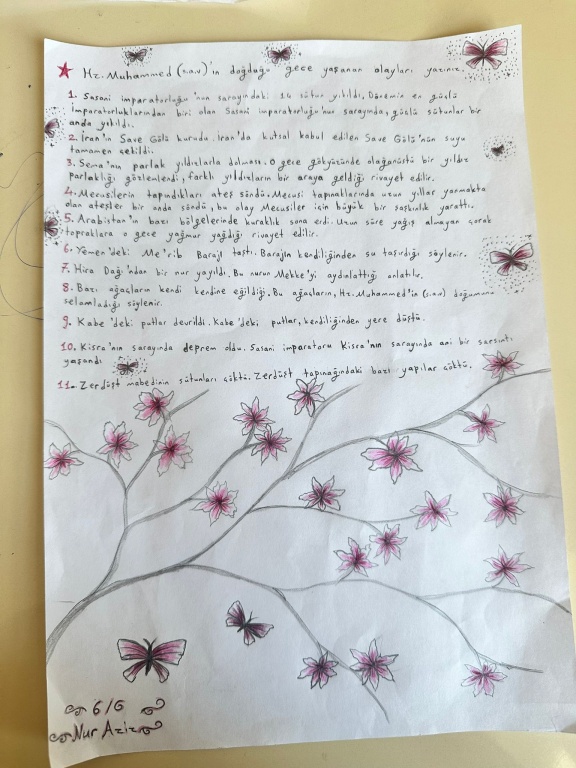 Hz. Muhammed (s.a.v)'in doğduğu gece yaşanan olayları yazınız.
1. Sasani imparatorluğu'nun sarayındaki 14 sütun yıkıldı. Dönemin en güçlü
imparatorluklarından biri olan Sasani imparatorluğu'nun sarayında, güçlü sütunlar bir
anda yıkıldı.
2. İran'ın Save Gölü kurudu. İran'da kutsal kabul edilen Save Gölü'nün suyu
tamamen çekildi.
3. Sema'nın parlak yıldızlarla dolması. O gece gökyüzünde olağanüstü bir yıldız
parlaklığı gözlemlendi, farklı yıldızların bir araya geldiği rivayet edilir.
4. Mecusilerin tapındıkları ateş söndü. Mecusi tapınaklarında uzun yıllar yanmakta
olan ateşler bir anda söndü, bu olay Mecusiler için büyük bir şaşkınlık yarattı.
5. Arabistan'ın bazı bölgelerinde kuraklık sona erdi. Uzun süre yağış almayan çorak
topraklara o gece yağmur yağdığı rivayet edilir.
6. Yemen'deki Me'rib Barajı taştı. Barajın kendiliğinden su taşırdığı söylenir.
7. Hira Dağı'ndan bir nur yayıldı. Bu nurun Mekke'yi aydınlattığı anlatılır.
8. Bazı ağaçların kendi kendine eğildiği. Bu ağaçların, Hz. Muhammed'in (s.a.v) doğumunu
selamladığı söylenir.
9. Kabe'deki putlar devrildi. Kabe'deki putlar, kendiliğinden yere düştü.
10. Kisra'nın sarayında deprem oldu. Sasani imparatoru Kisra'nın sarayında ani bir sarsıntı
yaşandı
11. Zerdüşt mabedinin sütunları çöktü. Zerdüşt tapınağındaki bazı yapılar çöktü.
6/G
Nur Azizi